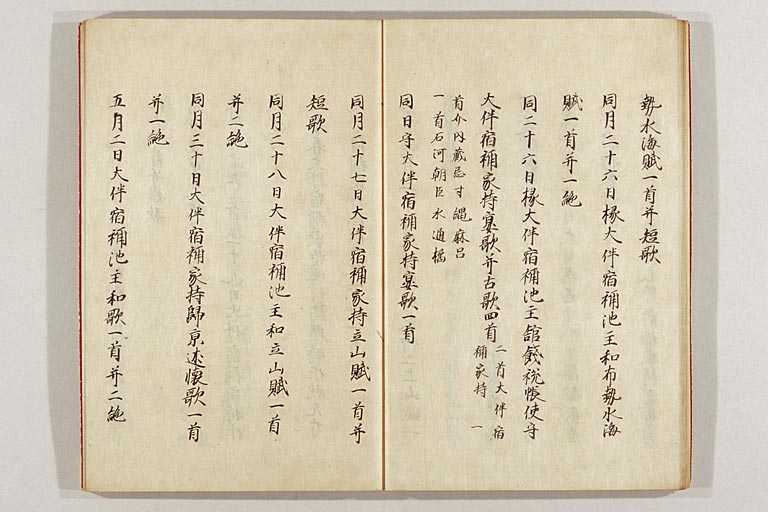 勢水海賦一首并短歌
同月二十六日掾大伴宿祢池主和布勢水海
賦一首并一絶
同二十六日掾大伴宿祢池主舘餞税帳使守
大伴宿祢家持宴歌并古歌四首
二首大伴宿
祢家持 一
首介内蔵忌寸縄麻呂
一首石河朝臣水通橘
同日守大伴宿祢家持宴歌一首
同月二十七日大伴宿祢家持立山賦一首并
短歌
同月二十八日大伴宿祢池主和立山賦一首
并二絶
同月三十日大伴宿祢家持歸京述懐歌一首
并一絶
五月二日大伴宿祢池主和歌一首并二絶